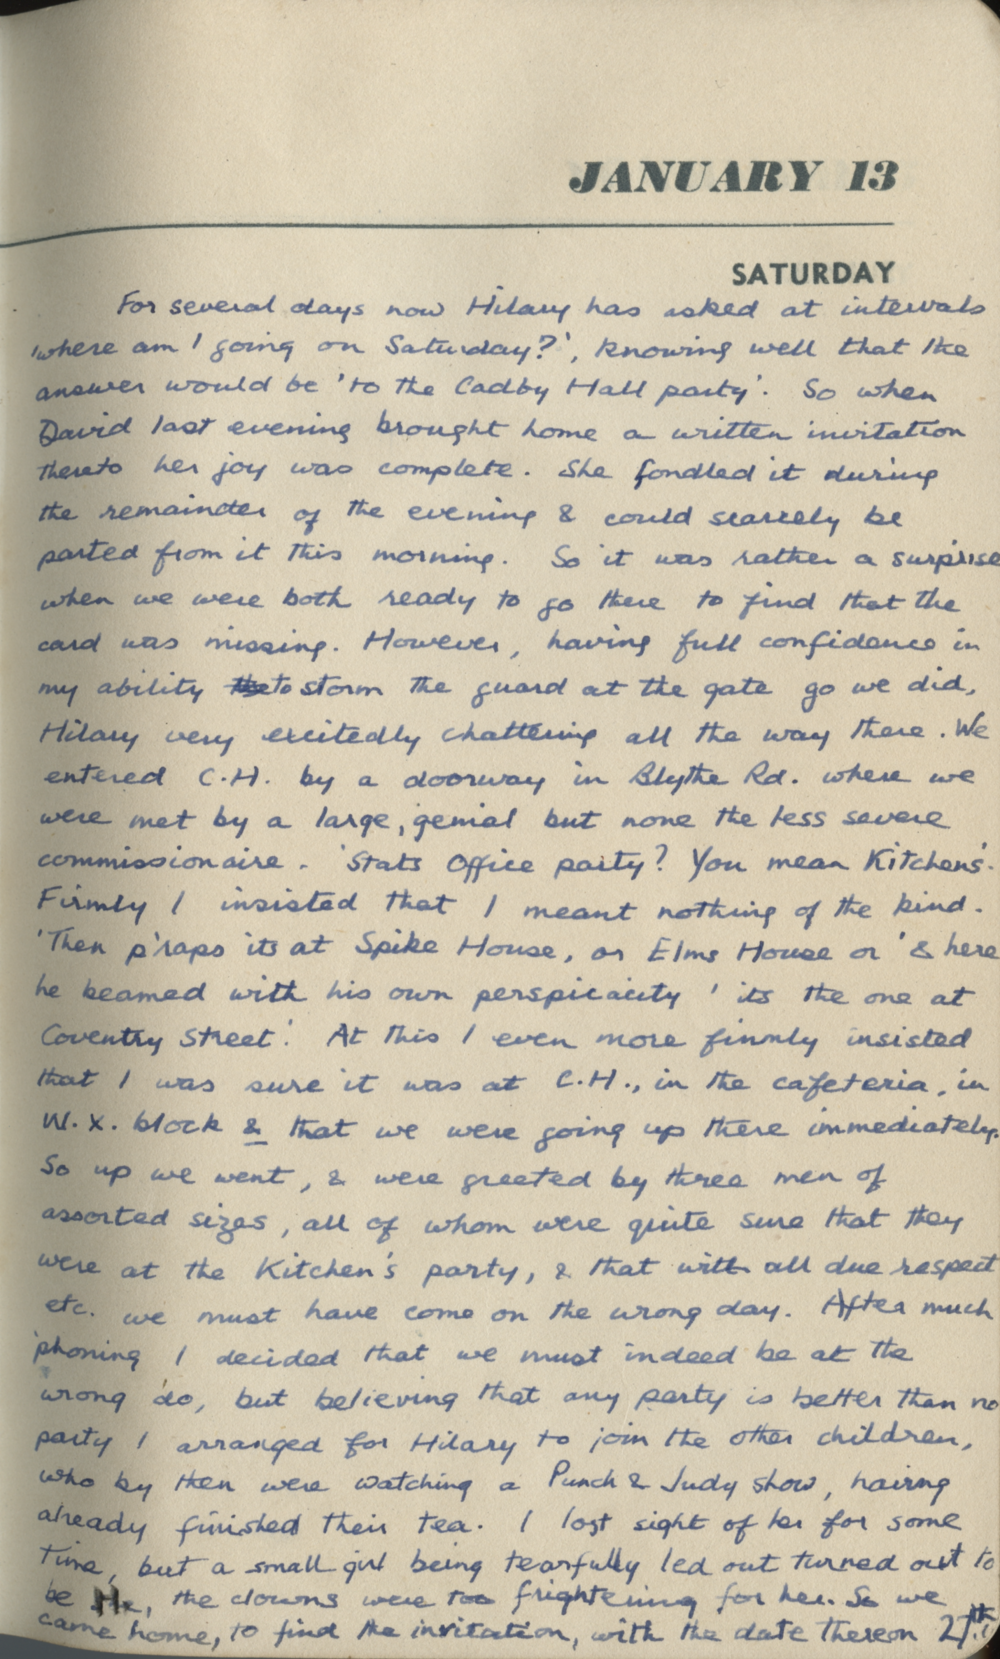 JANUARY 13
SATURDAY
For several days now Hilary has asked at intervals
'where am I going on Saturday?', knowing well that the
answer would be 'to the Cadby Hall party'. So when
David last evening brought home a written invitation
thereto her joy was complete. She fondled it during
the remainder of the evening & could scarcely be
parted from it this morning. So it was rather a surprise
when we were both ready to go there to find that the
card was missing. However, having full confidence in
my ability to storm the guard at the gate go we did,
Hilary very excitedly chattering all the way there. We
entered C.H. by a doorway in Blythe Rd. where we
were met by a large, genial but none the less severe
commissionaire. 'Stats Office party? You mean Kitchens'.
Firmly I insisted that I meant nothing of the kind.
'Then p'raps its at Spike House, or Elms House or' & here
he beamed with his own perspicacity 'its the one at
Coventry Street'. At this I even more firmly insisted
that I was sure it was at C.H., in the cafeteria, in
W.X. block & that we were going up there immediately.
So up we went, & were greeted by three men of
assorted sizes, all of whom were quite sure that they
were at the Kitchen's party, & that with all due respect
etc. we must have come on the wrong day. After much
'phoning I decided that we must indeed be at the
wrong 'do, but believing that any party is better than no
party I arranged for Hilary to join the other children,
who by then were watching a Punch & Judy show, having
already finished their tea. I lost sight of her for some
time, but a small girl being tearfully led out turned out to
be H., the clowns were too frightening for her. So we
came home, to find the invitation, with the date thereon 27th.!